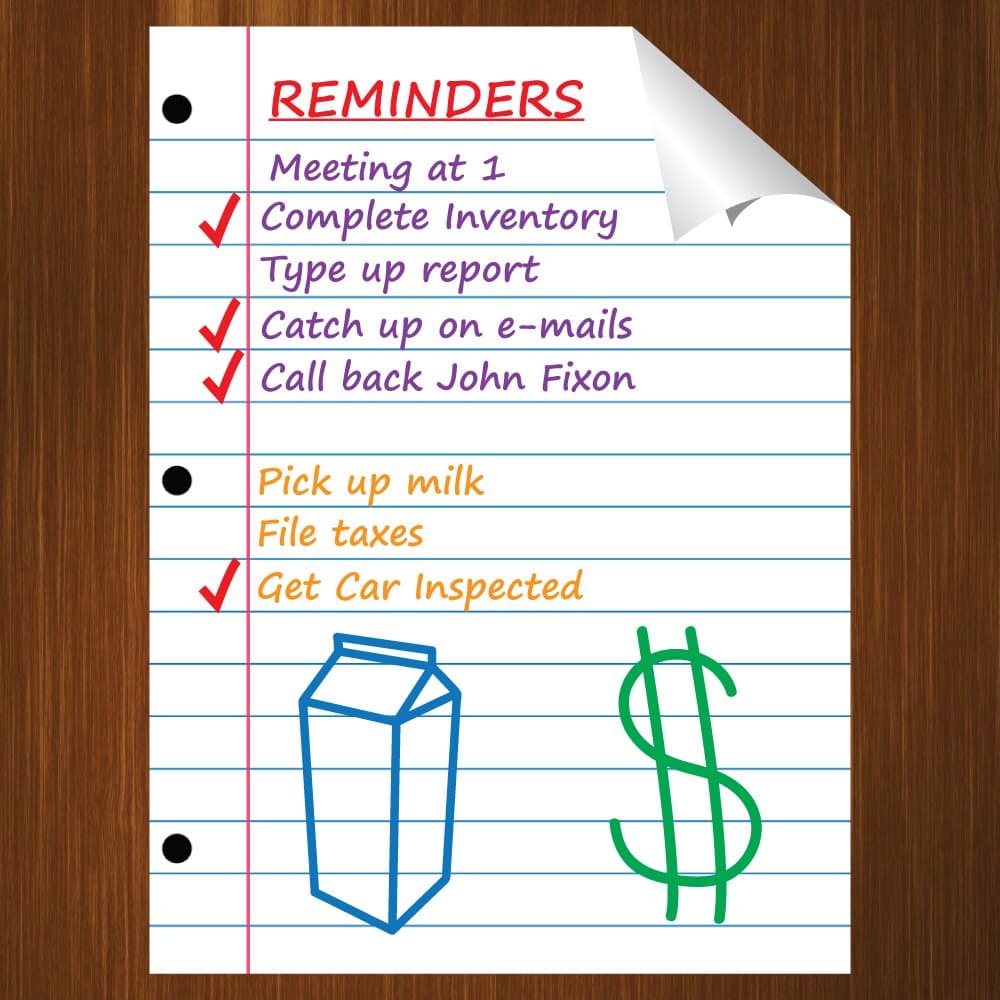 REMINDERS
Meeting at 1
Complete Inventory
Type up report
Catch up on e-mails
Call back John Fixon
Pick up milk
File taxes
Get Car Inspected
$